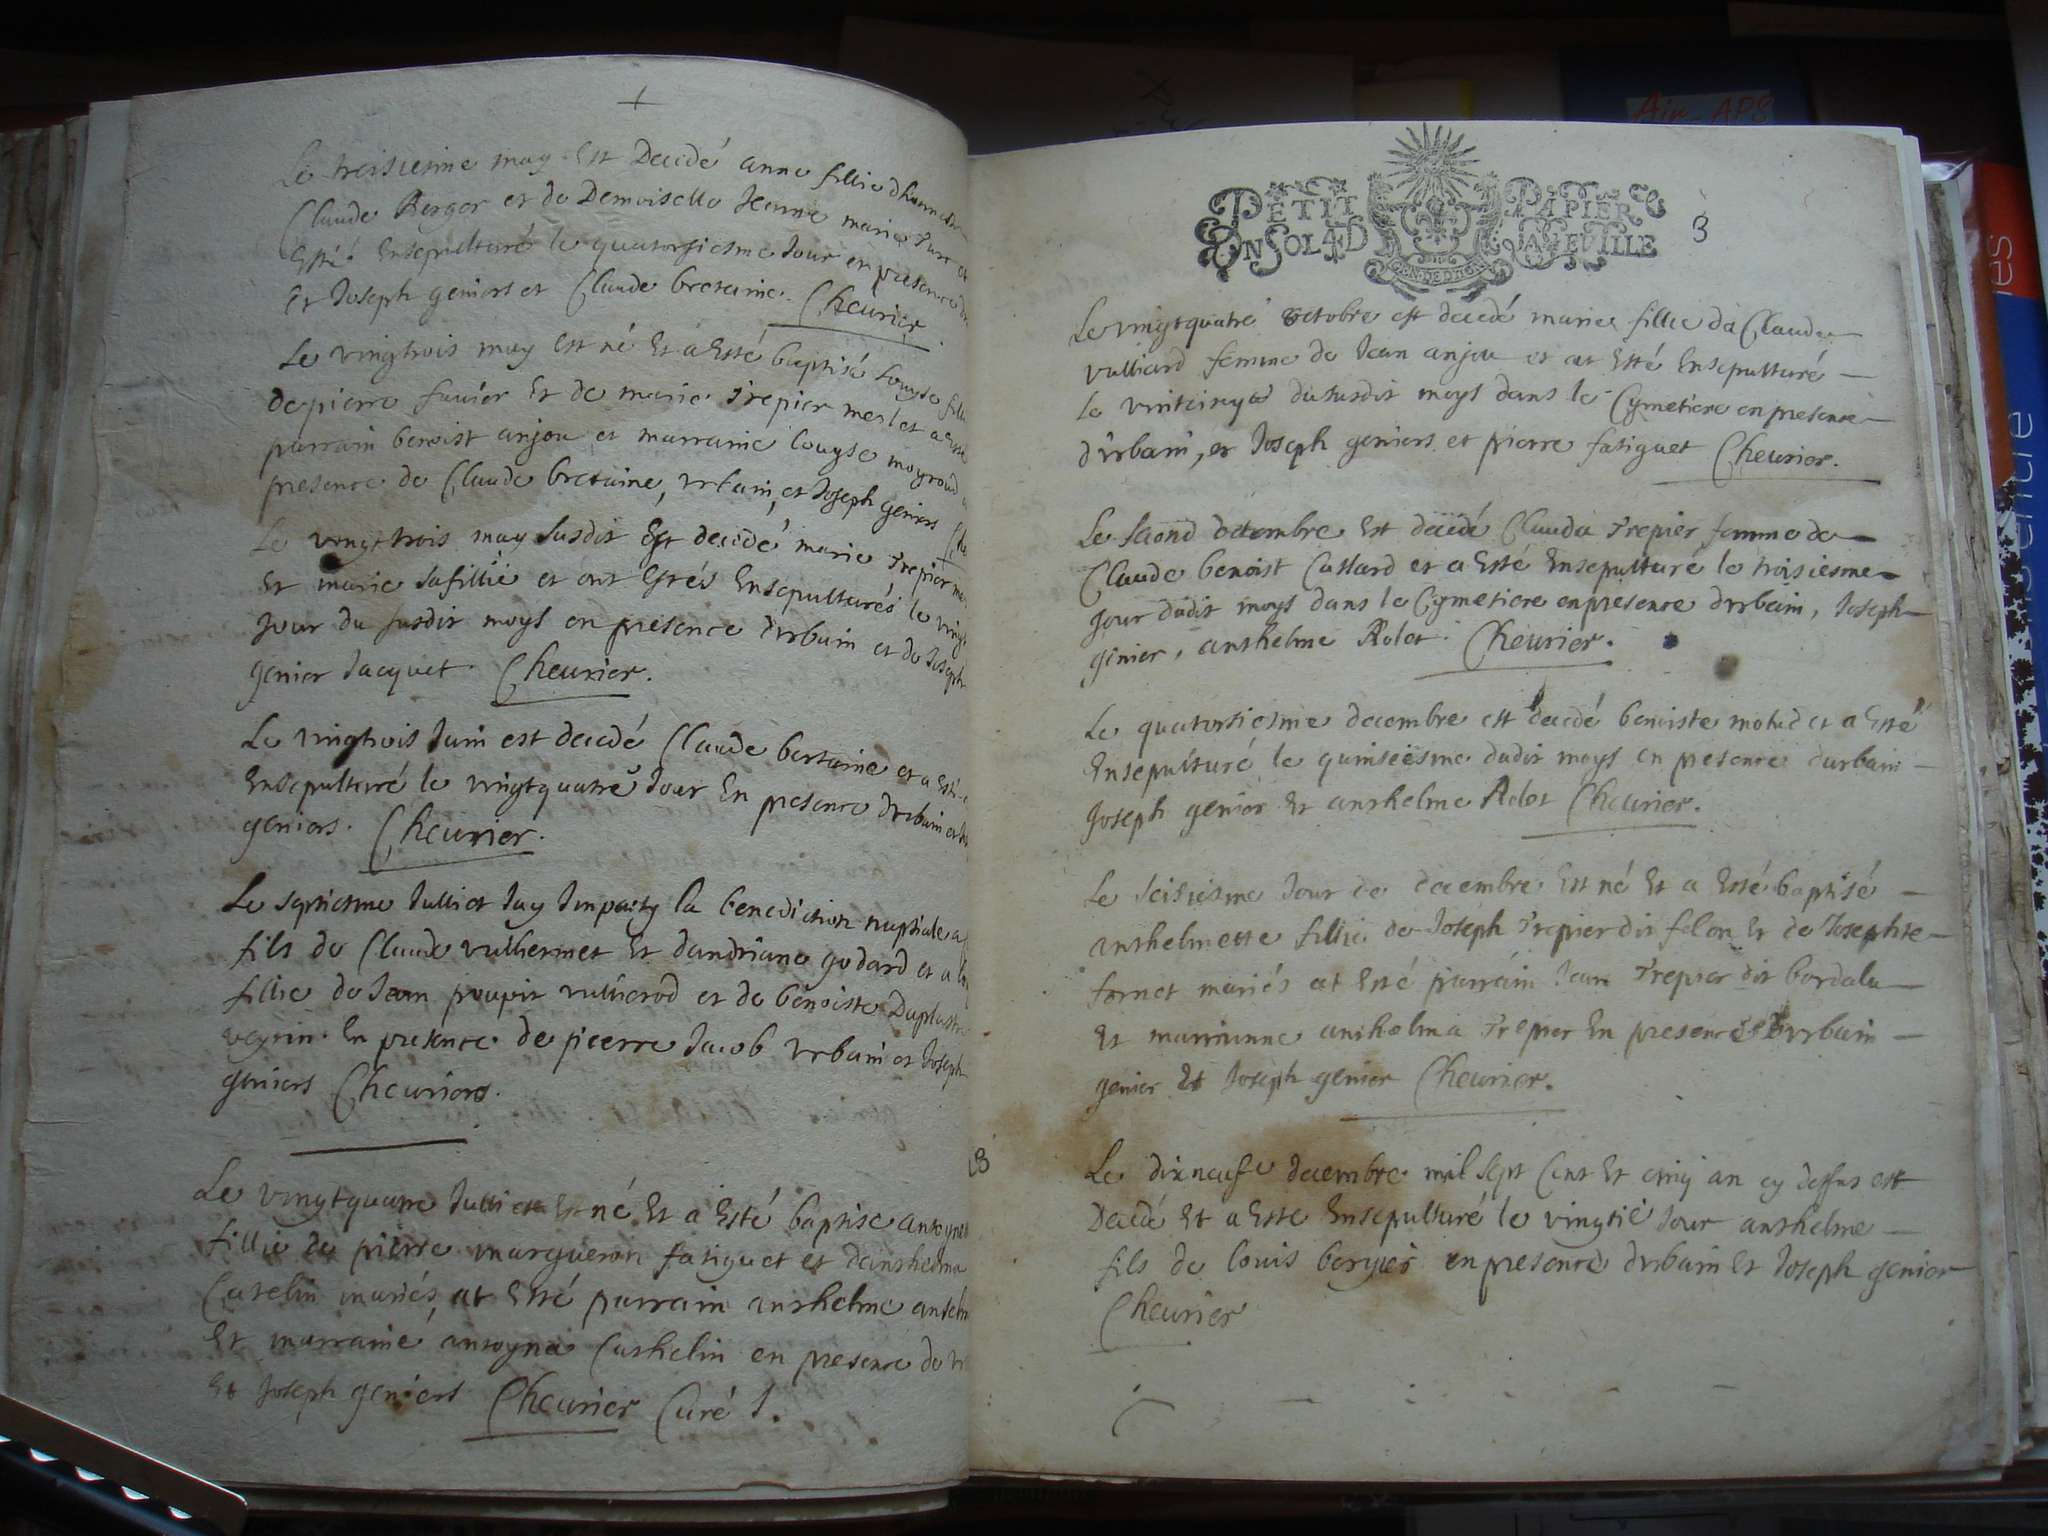 Le troisiesme may Est Decedé anne fillie dhonneste
Claude Berger et de Demoiselle Jeanne marie
Esté Ensepulturé le quatorsiesme Jour en presence
Et Joseph geniers et Claude bretaine. Cheurier
Le vingtrois may Est né Et a Esté baptisé Louyse fillie
de pierre favier Et de marie trepier
parrain benoist anjou et marraine louyse moyroud
presence de Claude bretaine, vrbain, et Joseph geniers
Le vingttrois may susdit Est decedé marie trepier
Et marie sa fillie et ont Estés Ensepulturés le vingt
Jour du susdit moys en presence durbain et de Joseph
genier Jacquet. Cheurier.
Le vingtrois Juin est decedé Claude bertaine et a Esté
Ensepulturé le vingtquatre Jour En presence durbain et
geniers. Cheurier.
Le septiesme Julliet Jay Imparty la benediction nuptiale a
fils de Claude vulliermet Et dandriane godard et a
fillie de Jean poupit vullierod et de benoiste
veyrin. En presence de pierre Jacob vrbain et Joseph
geniers Cheurier.
Le vingtquatre Julliet Est né Et a Esté baptisé
fillie de pierre margueron fatiguet et danthelma
Catelin mariés, at Esté parrain anthelme
Et marraine antoyna Cathelin en presence de
Et Joseph geniers Cheurier Curé J.
PETIT PAPIER
EN SOL 4 D LA FEVILLE
GEN. DE DIION
3
Le vingtquatre octobre est decedé marie fillie da Claude
vulliard femme de Jean anjou et at Esté Ensepulturé
le vintcinq du susdit moys dans le Cymetiere en presence
durbain, et Joseph geniers et pierre fatiguet Cheurier.
Le second decembre Est decedé Clauda trepier femme de
Claude benoist Callard et a Esté Ensepulturé le troisiesme
Jour dudit moys dans le Cymetiere en presence durbain, Joseph
genier, anthelme Rolet. Cheurier.
Le quatorsiesme decembre est decedé benoiste et a Esté
Ensepulturé le quinsiesme dudit moys en presence durbain
Joseph genier Et anthelme Rolet Cheurier.
Le seisiesme Jour de decembre Est né Et a Esté baptisé
anthelmette fillie de Joseph trepier dit felon Et de Josephte
fornet mariés at Esté parrain Jean trepier dit bordalu
Et marrainne anthelma trepier En presence durbain
genier Et Joseph genier Cheurier.
Le dixneufe decembre mil sept Cent Et cinq an cy dessus est
Decedé Et a Este Ensepulturé le vingtié Jour anthelme
fils de louis bergier en presence durbain Et Joseph genier
Cheurier